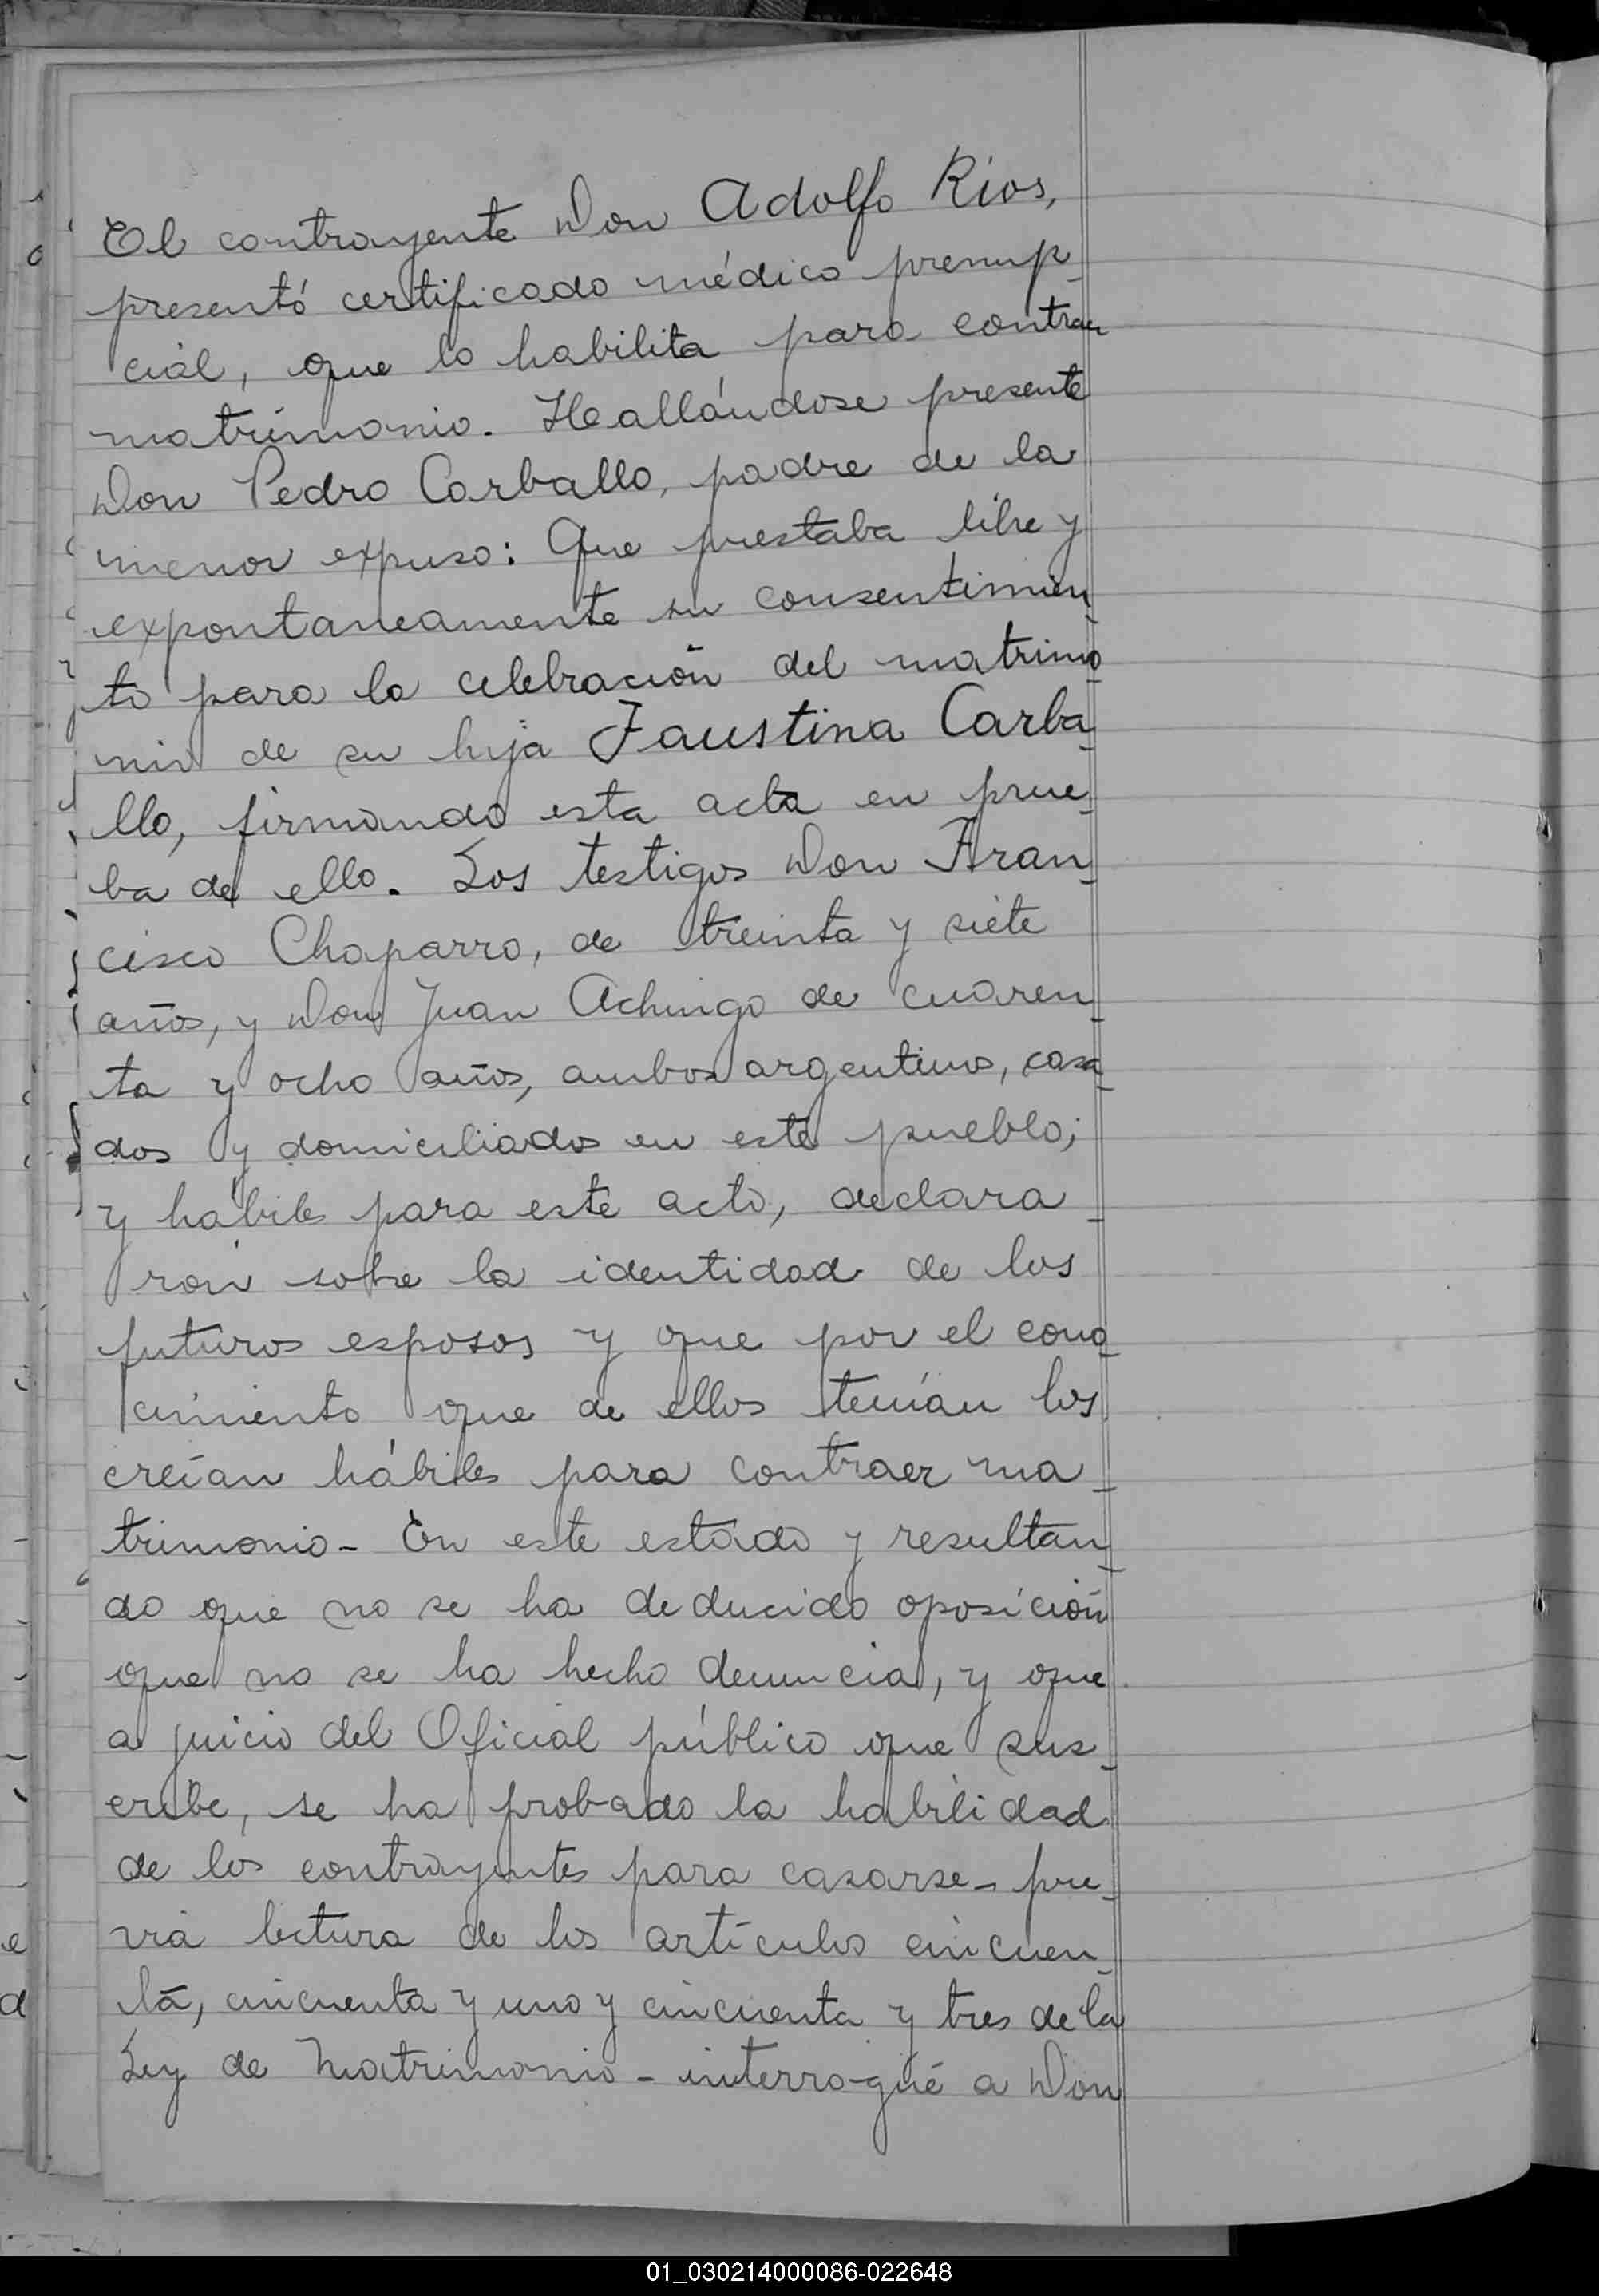 El contrayente Don Adolfo Rios,
presentó certificado médico prenup-
cial, que lo habilita para contraer
matrimonio. Hallándose presente
Don Pedro Carballo, padre de la
menor expuso: Que prestaba libre y
expontaneamente su consentimien-
to para la celebración del matrimo-
nio de su hija Faustina Carba-
llo, firmando esta acta en prue-
ba de ello. Los testigos Don Fran-
cisco Chaparro, de treinta y siete
años, y Don Juan Achingo de cuaren-
ta y ocho años, ambos argentinos, casa-
dos y domiciliados en este pueblo;
y hábiles para este acto, declara-
ron sobre la identidad de los
futuros esposos y que por el cono-
cimiento que de ellos tenían los
creían hábiles para contraer ma-
trimonio - En este estado y resultan-
do que no se ha deducido oposición
que no se ha hecho denuncia, y que
a juicio del Oficial público que sus-
cribe, se ha probado la habilidad
de los contrayentes para casarse - pre-
via lectura de los artículos cincuen-
ta, cincuenta y uno y cincuenta y tres de la
Ley de Matrimonio - interrogué a Don
01_030214000086-022648